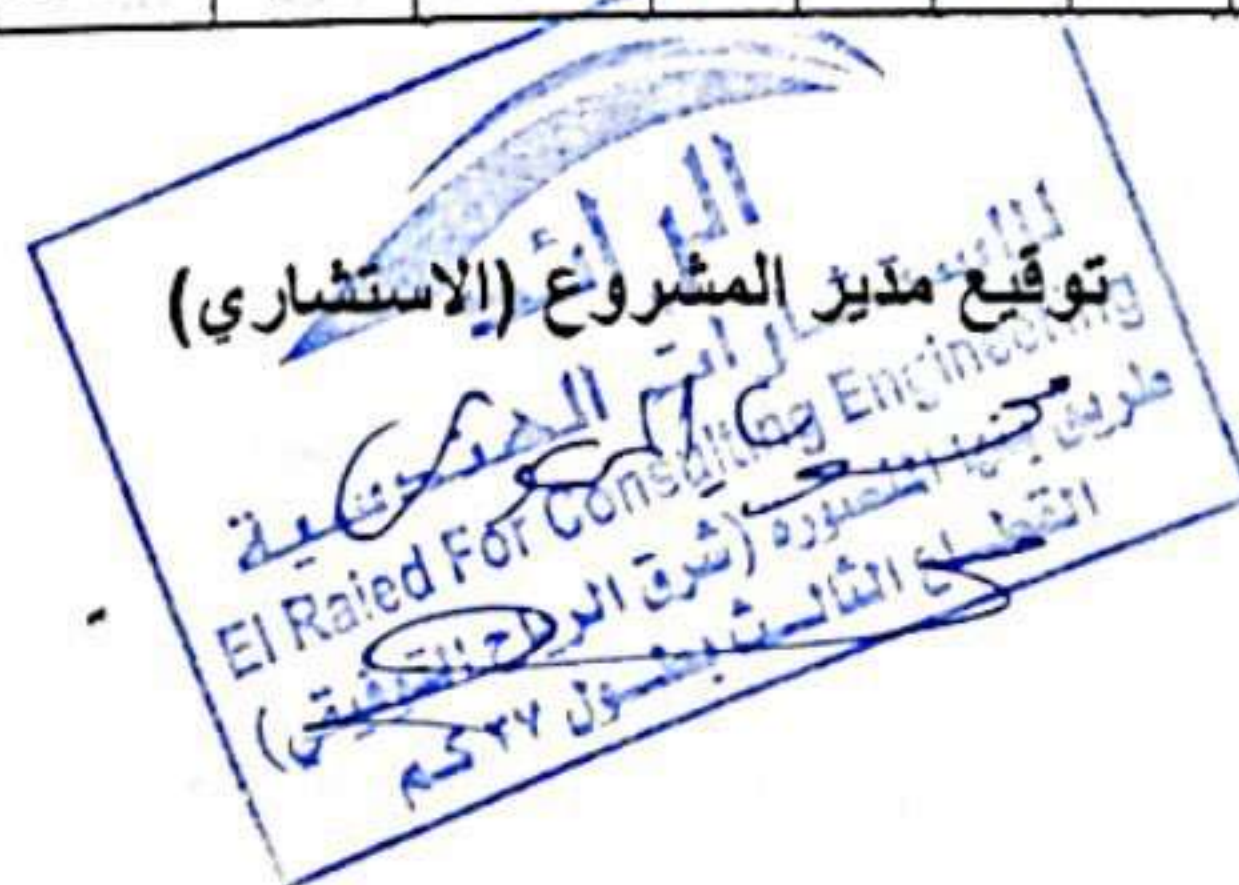 توقيع مدير المشروع (الاستشاري)
الرائد
للاستشارات الهندسية
El Raied For Consulting Engineering
طريق بنها المنصوره (شرق الرياح التوفيقي)
القطاع الثالث بطول ٢٧ كم